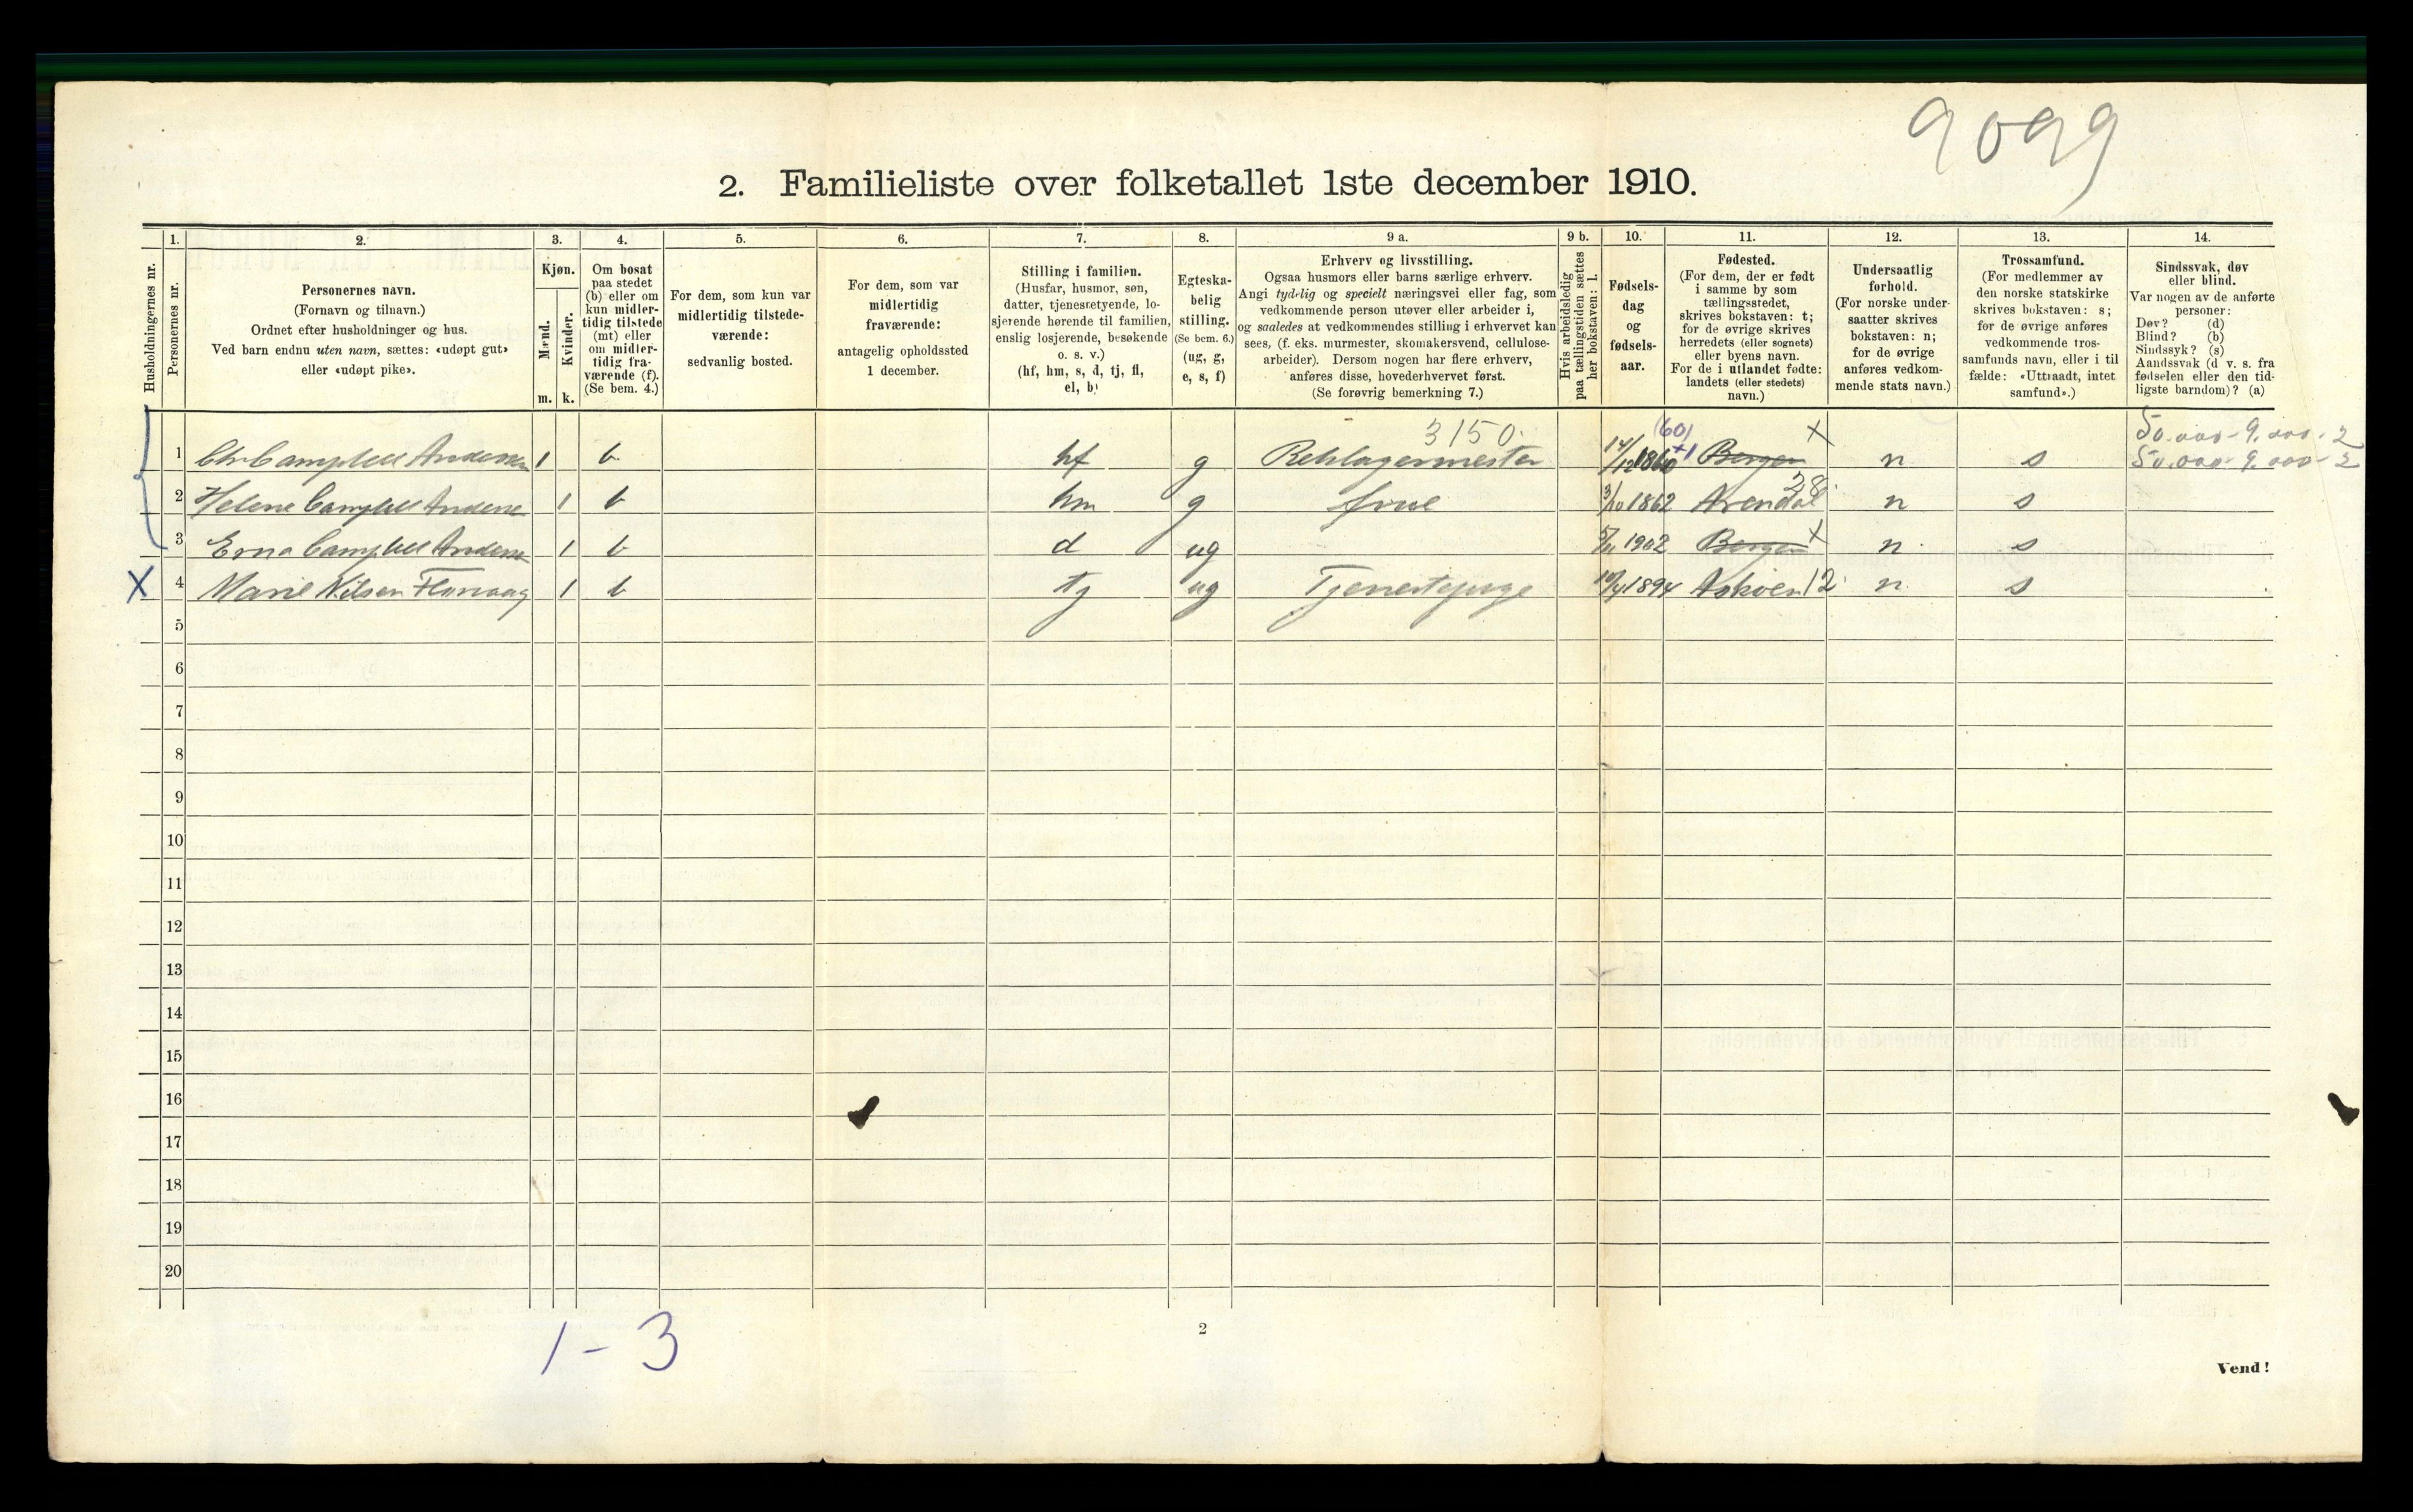 9099
2. Familieliste over folketallet 1ste december 1910.
Husholdningernes nr.
1. Personernes nr.
2. Personernes navn. (Fornavn og tilnavn.) Ordnet efter husholdninger og hus. Ved barn endnu uten navn, sættes: «udøpt gut» eller «udøpt pike».
3. Kjøn. Mænd. m. Kvinder. k.
4. Om bosat paa stedet (b) eller om kun midlertidig tilstede (mt) eller om midlertidig fraværende (f). (Se bem. 4.)
5. For dem, som kun var midlertidig tilstedeværende: sedvanlig bosted.
6. For dem, som var midlertidig fraværende: antagelig opholdssted 1 december.
7. Stilling i familien. (Husfar, husmor, søn, datter, tjenestetyende, losjerende hørende til familien, enslig losjerende, besøkende o. s. v.) (hf, hm, s, d, tj, fl, el, b)
8. Egteskabelig stilling. (Se bem. 6.) (ug, g, e, s, f)
9 a. Erhverv og livsstilling. Ogsaa husmors eller barns særlige erhverv. Angi tydelig og specielt næringsvei eller fag, som vedkommende person utøver eller arbeider i, og saaledes at vedkommendes stilling i erhvervet kan sees, (f. eks. murmester, skomakersvend, cellulosearbeider). Dersom nogen har flere erhverv, anføres disse, hovederhvervet først. (Se forøvrig bemerkning 7.)
9 b. Hvis arbeidsledig paa tællingstiden sættes her bokstaven: l.
10. Fødselsdag og fødselsaar.
11. Fødested. (For dem, der er født i samme by som tællingsstedet, skrives bokstaven: t; for de øvrige skrives herredets (eller sognets) eller byens navn. For de i utlandet fødte: landets (eller stedets) navn.)
12. Undersaatlig forhold. (For norske undersaatter skrives bokstaven: n; for de øvrige anføres vedkommende stats navn.)
13. Trossamfund. (For medlemmer av den norske statskirke skrives bokstaven: s; for de øvrige anføres vedkommende trossamfunds navn, eller i tilfælde: «Uttraadt, intet samfund».)
14. Sindssvak, døv eller blind. Var nogen av de anførte personer: Døv? (d) Blind? (b) Sindssyk? (s) Aandssvak (d v. s. fra fødselen eller den tidligste barndom)? (a)
3150. (60) +1 X 50.000-9.000-2
1 Chr Campbell Andersen 1 b hf g Reblagermester 14/12 1860 Bergen n s 50.000-9.000-2
2 Helene Campbell Andersen 1 b hm g frue 3/10 1862 Arendal 28. n s
3 Erna Campbell Andersen 1 b d ug 5/11 1902 Bergen X n. s
X 4 Marie Nilsen Florvaag 1 b tj ug Tjenestepige 10/4 1894 Askøen 12. n. s
5
6
7
8
9
10
11
12
13
14
15
16
17
18
19
20
1 - 3
2
Vend!